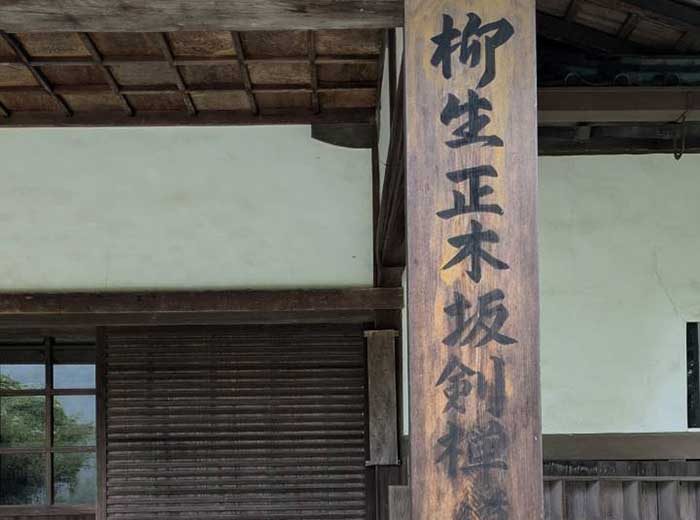 柳生正木坂剣禅